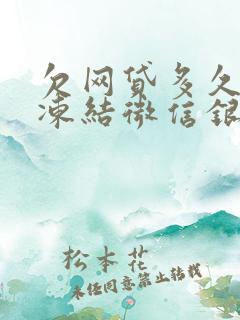 欠网贷多久
凍結微信銀
松本花
未经同意禁止转载